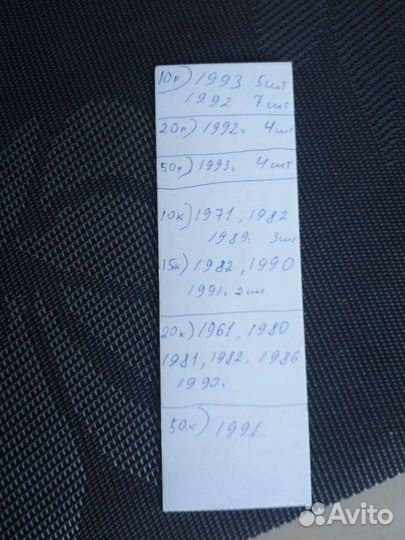 10р) 1993 5шт
1992 7шт
20р) 1992г 4шт
50р) 1993г 4шт
10к) 1971, 1982
1989г 3шт
15к) 1982, 1990
1991г 2шт
20к) 1961, 1980
1981, 1982, 1986
1990г
50к) 1991г
Avito